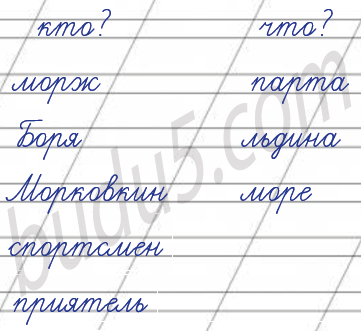 кто? что?
морж парта
Боря льдина
Морковкин море
спортсмен
приятель
budu5.com